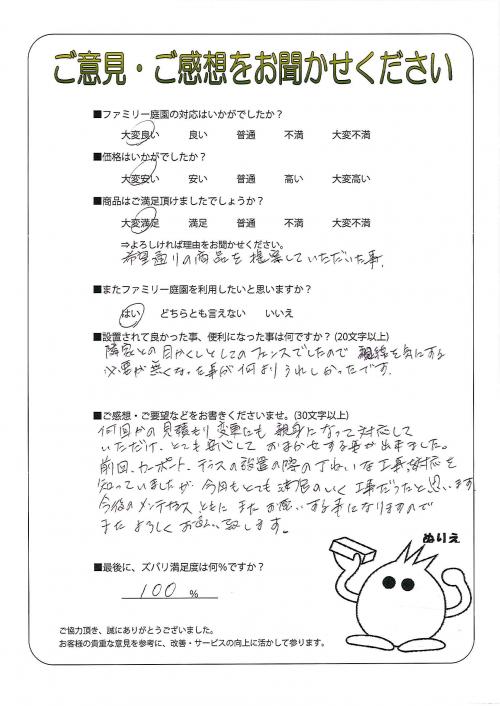 ご意見・ご感想をお聞かせください
■ファミリー庭園の対応はいかがでしたか？
大変良い 良い 普通 不満 大変不満
■価格はいかがでしたか？
大変安い 安い 普通 高い 大変高い
■商品はご満足頂けましたでしょうか？
大変満足 満足 普通 不満 大変不満
⇒よろしければ理由をお聞かせください。
希望通りの商品を提案していただいた事。
■またファミリー庭園を利用したいと思いますか？
はい どちらとも言えない いいえ
■設置されて良かった事、便利になった事は何ですか？(20文字以上)
隣家との目かくしとしてのフェンスでしたので 視線を気にする
必要が無くなった事が何よりうれしかったです。
■ご感想・ご要望などをお書きくださいませ。(30文字以上)
何回かの見積もり変更にも 親身になって対応して
いただけ、とても安心して おまかせする事が出来ました。
前回、カーポート、テラスの設置の際のていねいな工事、対応を
知っていましたが 今回もとても満足のいく工事だったと思います
今後のメンテナンス ともに またお願いする事になりますので
またよろしくお願い致します。
ぬりえ
■最後に、ズバリ満足度は何%ですか？
100 %
ご協力頂き、誠にありがとうございました。
お客様の貴重な意見を参考に、改善・サービスの向上に活かして参ります。